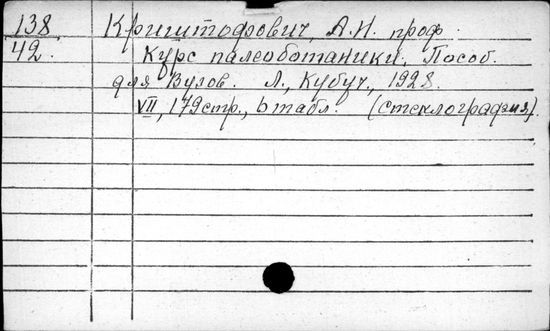 138 Криштофович, А.Н. проф.
42. Курс палеоботаники. Пособ.
для Вузов. Л., Кубуч, 1928.
VII, 179 стр., 6 табл. (Стеклография).